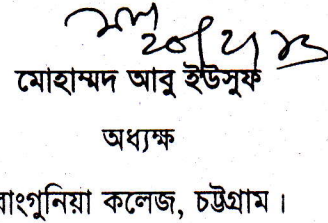 মোহাম্মদ আবু ইউসুফ
অধ্যক্ষ
রাংগুনিয়া কলেজ, চট্টগ্রাম।